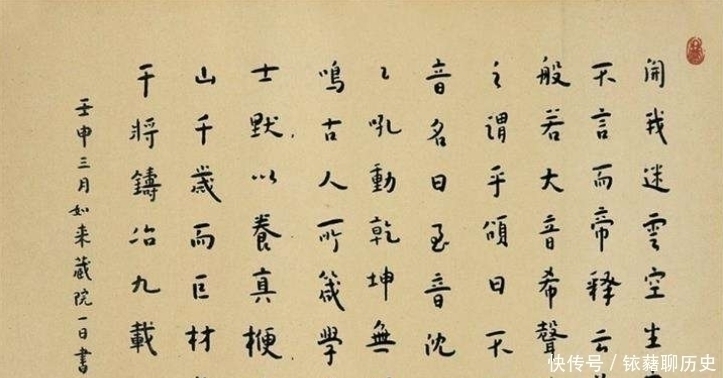 開我迷雲空生
不言而帝釋云
般若大音希聲
之謂乎頌曰不
音名曰至音沈
々吼動乾坤無
鳴古人所箴學
士默以養真楩
山千歲而巨材
干將鑄冶九載
壬申三月如来藏院一日書
快传号/聊历史